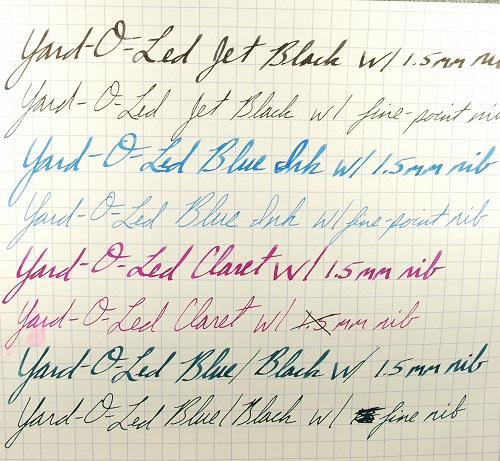 Yard-O-Led Jet Black w/ 1.5mm nib
Yard-O-Led Jet Black w/ fine-point
Yard-O-Led Blue Ink w/ 1.5mm nib
Yard-O-Led Blue Ink w/ fine-point nib
Yard-O-Led Claret w/ 1.5mm nib
Yard-O-Led Claret w/ 1.5mm nib
Yard-O-Led Blue/Black w/ 1.5mm nib
Yard-O-Led Blue/Black w/ fine nib